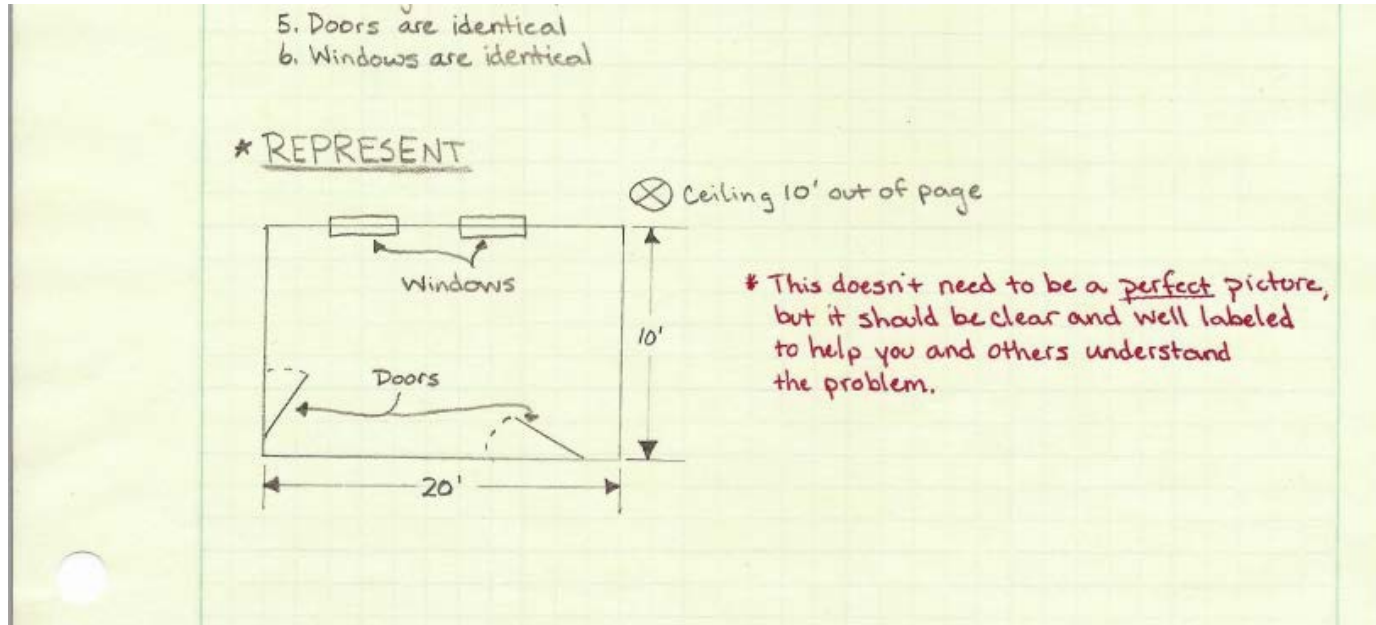 5. Doors are identical
6. Windows are identical
* REPRESENT
⊗ Ceiling 10' out of page
Windows
10'
* This doesn't need to be a perfect picture,
but it should be clear and well labeled
to help you and others understand
the problem.
Doors
20'